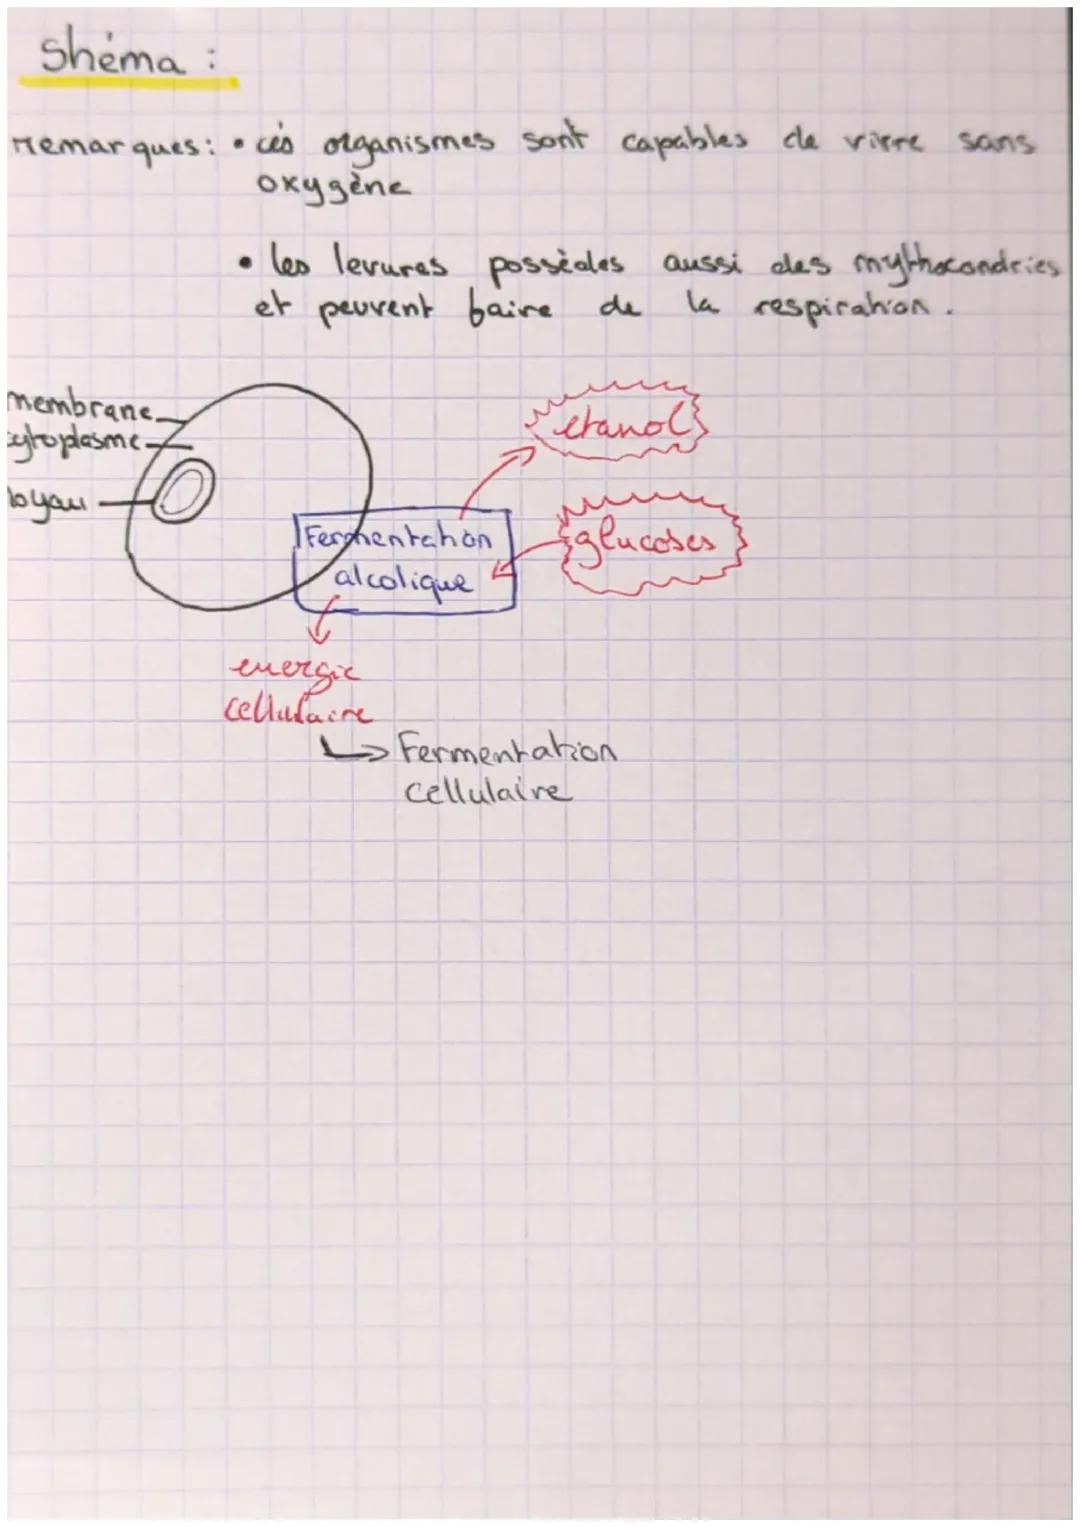 Shéma :
remarques: • ces organismes sont capables de vivre sans
oxygène
• les levures possèdes aussi des mythocondries
et peuvent faire de la respiration.
membrane
cytoplasme
noyau
etanol
Fermentation
alcolique
glucoses
energie
cellulaire
↳ Fermentation
cellulaire